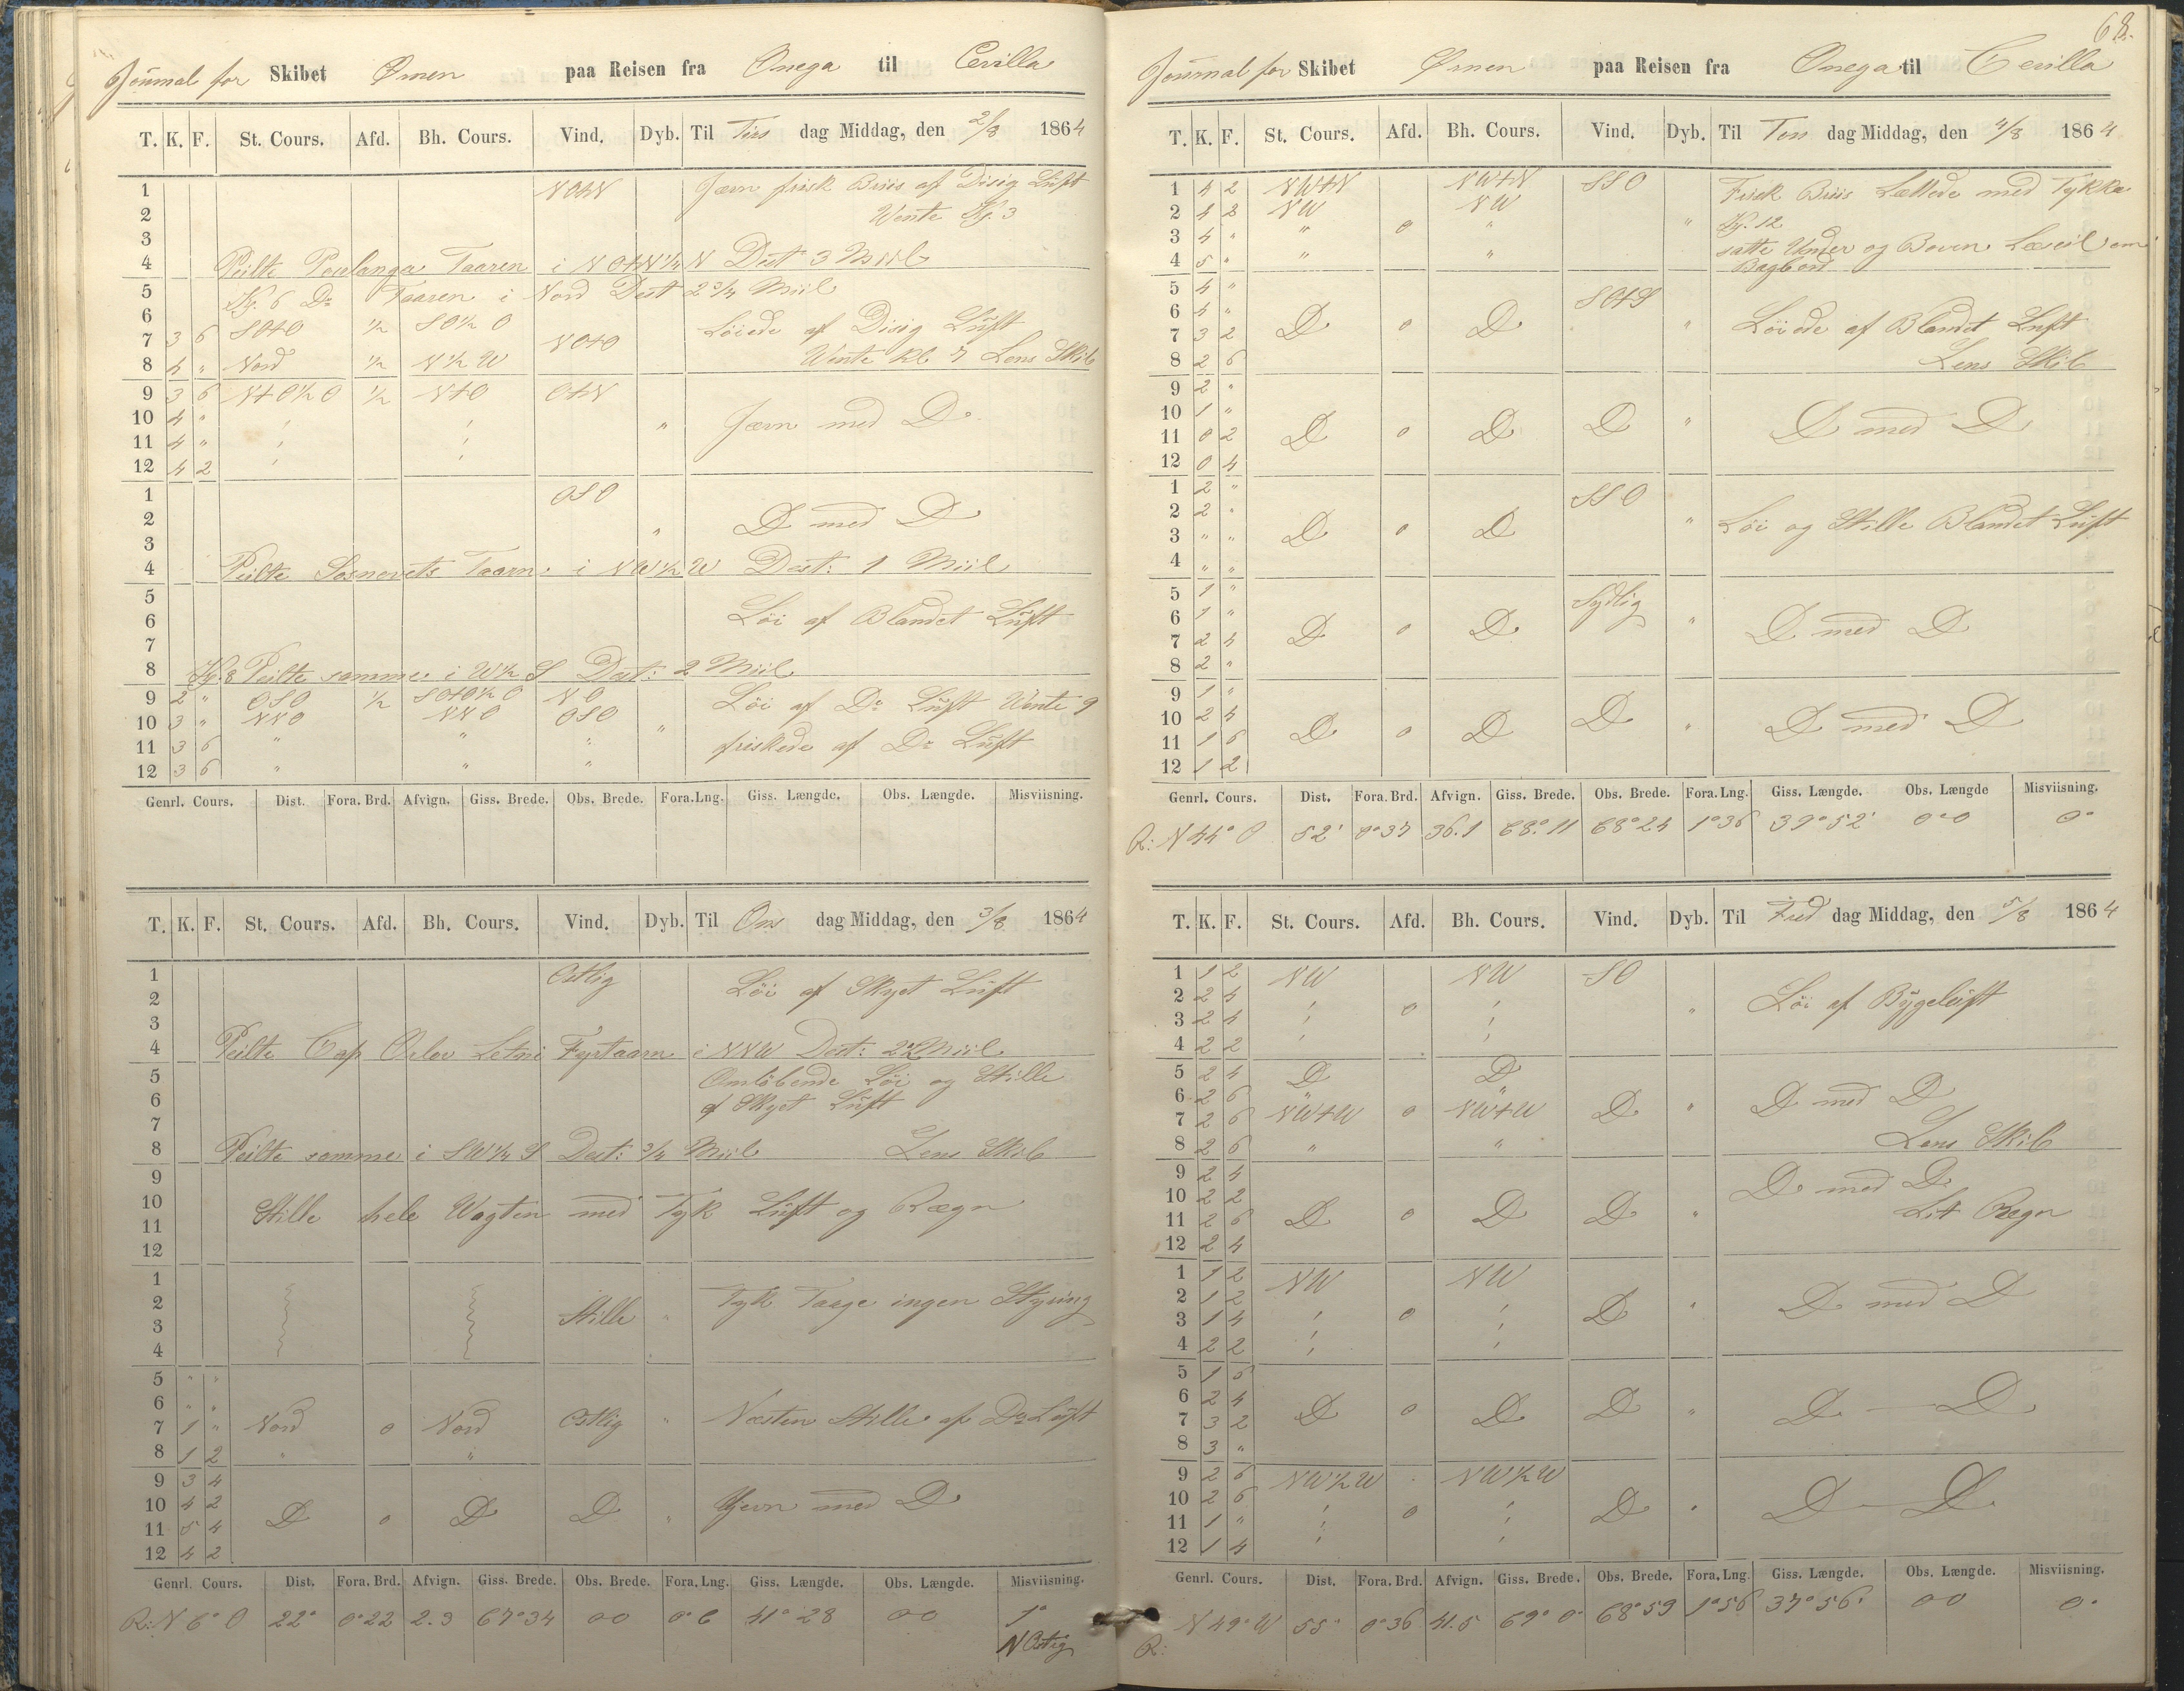 Journal for Skibet Ørnen paa Reisen fra Onega til Cevilla
T. K. F. St. Cours. Afd. Bh. Cours. Vind. Dyb. Til Tirs dag Middag, den 2/8 1864
1 NOtN Jævn frisk Briis af Disig Luft
2 Vente Kl. 3
3
4 Peilte Taaren i NOtN 1/4 N Dest 3 Miil
5 Kl. 6 Do Taaren i Nord Dest 2 3/4 Miil
6 SOtO 1/2 SO 1/2 O Løiede af Disig Luft
7 3 6 NOtO
8 4 " Nord 1/2 N 1/2 W Vente Kl 7 Lens Skib
9 3 6 NtO 1/2 O 1/2 NtO OtN
10 4 " " Jævn med Do
11 4 "
12 4 2
1 OSO
2 D med D
3 "
4 Peilte Sosnovets Taarn i NW 1/2 W Dest: 1 Miil
5
6 Løi af Blandet Luft
7
8 Kl. 8 Peilte samme i W 1/2 S Dest: 2 Miil
9 2 " OSO 1/2 SOtO 1/2 O NO Løi af Do Luft Vente 9
10 3 " NNO NNO OSO "
11 3 6 " " " friskede af Do Luft
12 3 6 " " "
Genrl. Cours. Dist. Fora. Brd. Afvign. Giss. Brede. Obs. Brede. Fora. Lng. Giss. Længde. Obs. Længde. Misviisning.
T. K. F. St. Cours. Afd. Bh. Cours. Vind. Dyb. Til Ons dag Middag, den 3/8 1864
1 Ostlig Løi af Skyet Luft
2
3
4 Peilte Cap Orlov Letni Fyrtaarn i NNW Dest: 2 Miil
5 Omløbende Løi og Stille
6 af Skyet Luft
7
8 Peilte samme i SW 1/4 S Dest: 3/4 Miil Lens Skib
9
10 Stille hele Vagten med Tyk Luft og Rægn
11
12
1
2 Stille " Tyk Taage ingen Styring
3
4
5 " "
6 " "
7 1 " Nord o Nord Ostlig " Næsten Stille af Do Luft
8 1 2 " "
9 3 4
10 4 2 D o D D " Jevn med D
11 5 4
12 4 2
Genrl. Cours. Dist. Fora. Brd. Afvign. Giss. Brede. Obs. Brede. Fora. Lng. Giss. Længde. Obs. Længde. Misviisning.
R: N 6° O 22° 0°22 2.3 67°34 00 0°6 41°28 00 1°
N Ostig
68.
Journal for Skibet Ørnen paa Reisen fra Onega til Cevilla
T. K. F. St. Cours. Afd. Bh. Cours. Vind. Dyb. Til Tors dag Middag, den 4/8 1864
1 4 2 NWtN NWtN SSO Frisk Briis Lettede med Tykke
2 4 2 NW o NW " Kl. 12
3 4 " " " satte Under og Boven Læseil om
4 5 " " " Bagbord
5 4 " SOtS
6 4 " D o D " Løiede af Blandet Luft
7 3 2
8 2 6 Lens Skib
9 2 "
10 1 " D o D D " D med D
11 0 2
12 0 4
1 2 " SSO
2 2 " " Løi og Stille Blandet Luft
3 " " D o D
4 " "
5 1 " Sydlig
6 1 " D o D " D med D
7 2 4
8 2 "
9 1 "
10 2 4 D o D D " D med D
11 1 6
12 1 2
Genrl. Cours. Dist. Fora. Brd. Afvign. Giss. Brede. Obs. Brede. Fora. Lng. Giss. Længde. Obs. Længde Misviisning.
R: N 44° O 52' 0°37 36.1 68°11 68°24 1°36 39°52' 0°0 0°
T. K. F. St. Cours. Afd. Bh. Cours. Vind. Dyb. Til Fred dag Middag, den 5/8 1864
1 1 2 NW NW SO
2 2 4 o " Løi af Bygeluft
3 2 4
4 2 2
5 2 4 D D
6 2 6 " " D med D
7 2 6 NWtW o NWtW D "
8 2 6 " " Lens Skib
9 2 4 D med D
10 2 2 Lit Rægn
11 2 6 D o D D "
12 2 4
1 1 2 NW NW
2 1 2 D med D
3 1 4 o D "
4 2 2
5 1 6
6 2 4 D o D D " D — D
7 3 2
8 3 "
9 2 6 NW 1/2 W NW 1/2 W
10 2 6 o D " D — D
11 1 "
12 1 4
Genrl. Cours. Dist. Fora. Brd. Afvign. Giss. Brede. Obs. Brede. Fora. Lng. Giss. Længde. Obs. Længde. Misviisning.
R: N 49° W 55° 0°36 41.5 69°0° 68°59 1°56 37°56' 00 0°